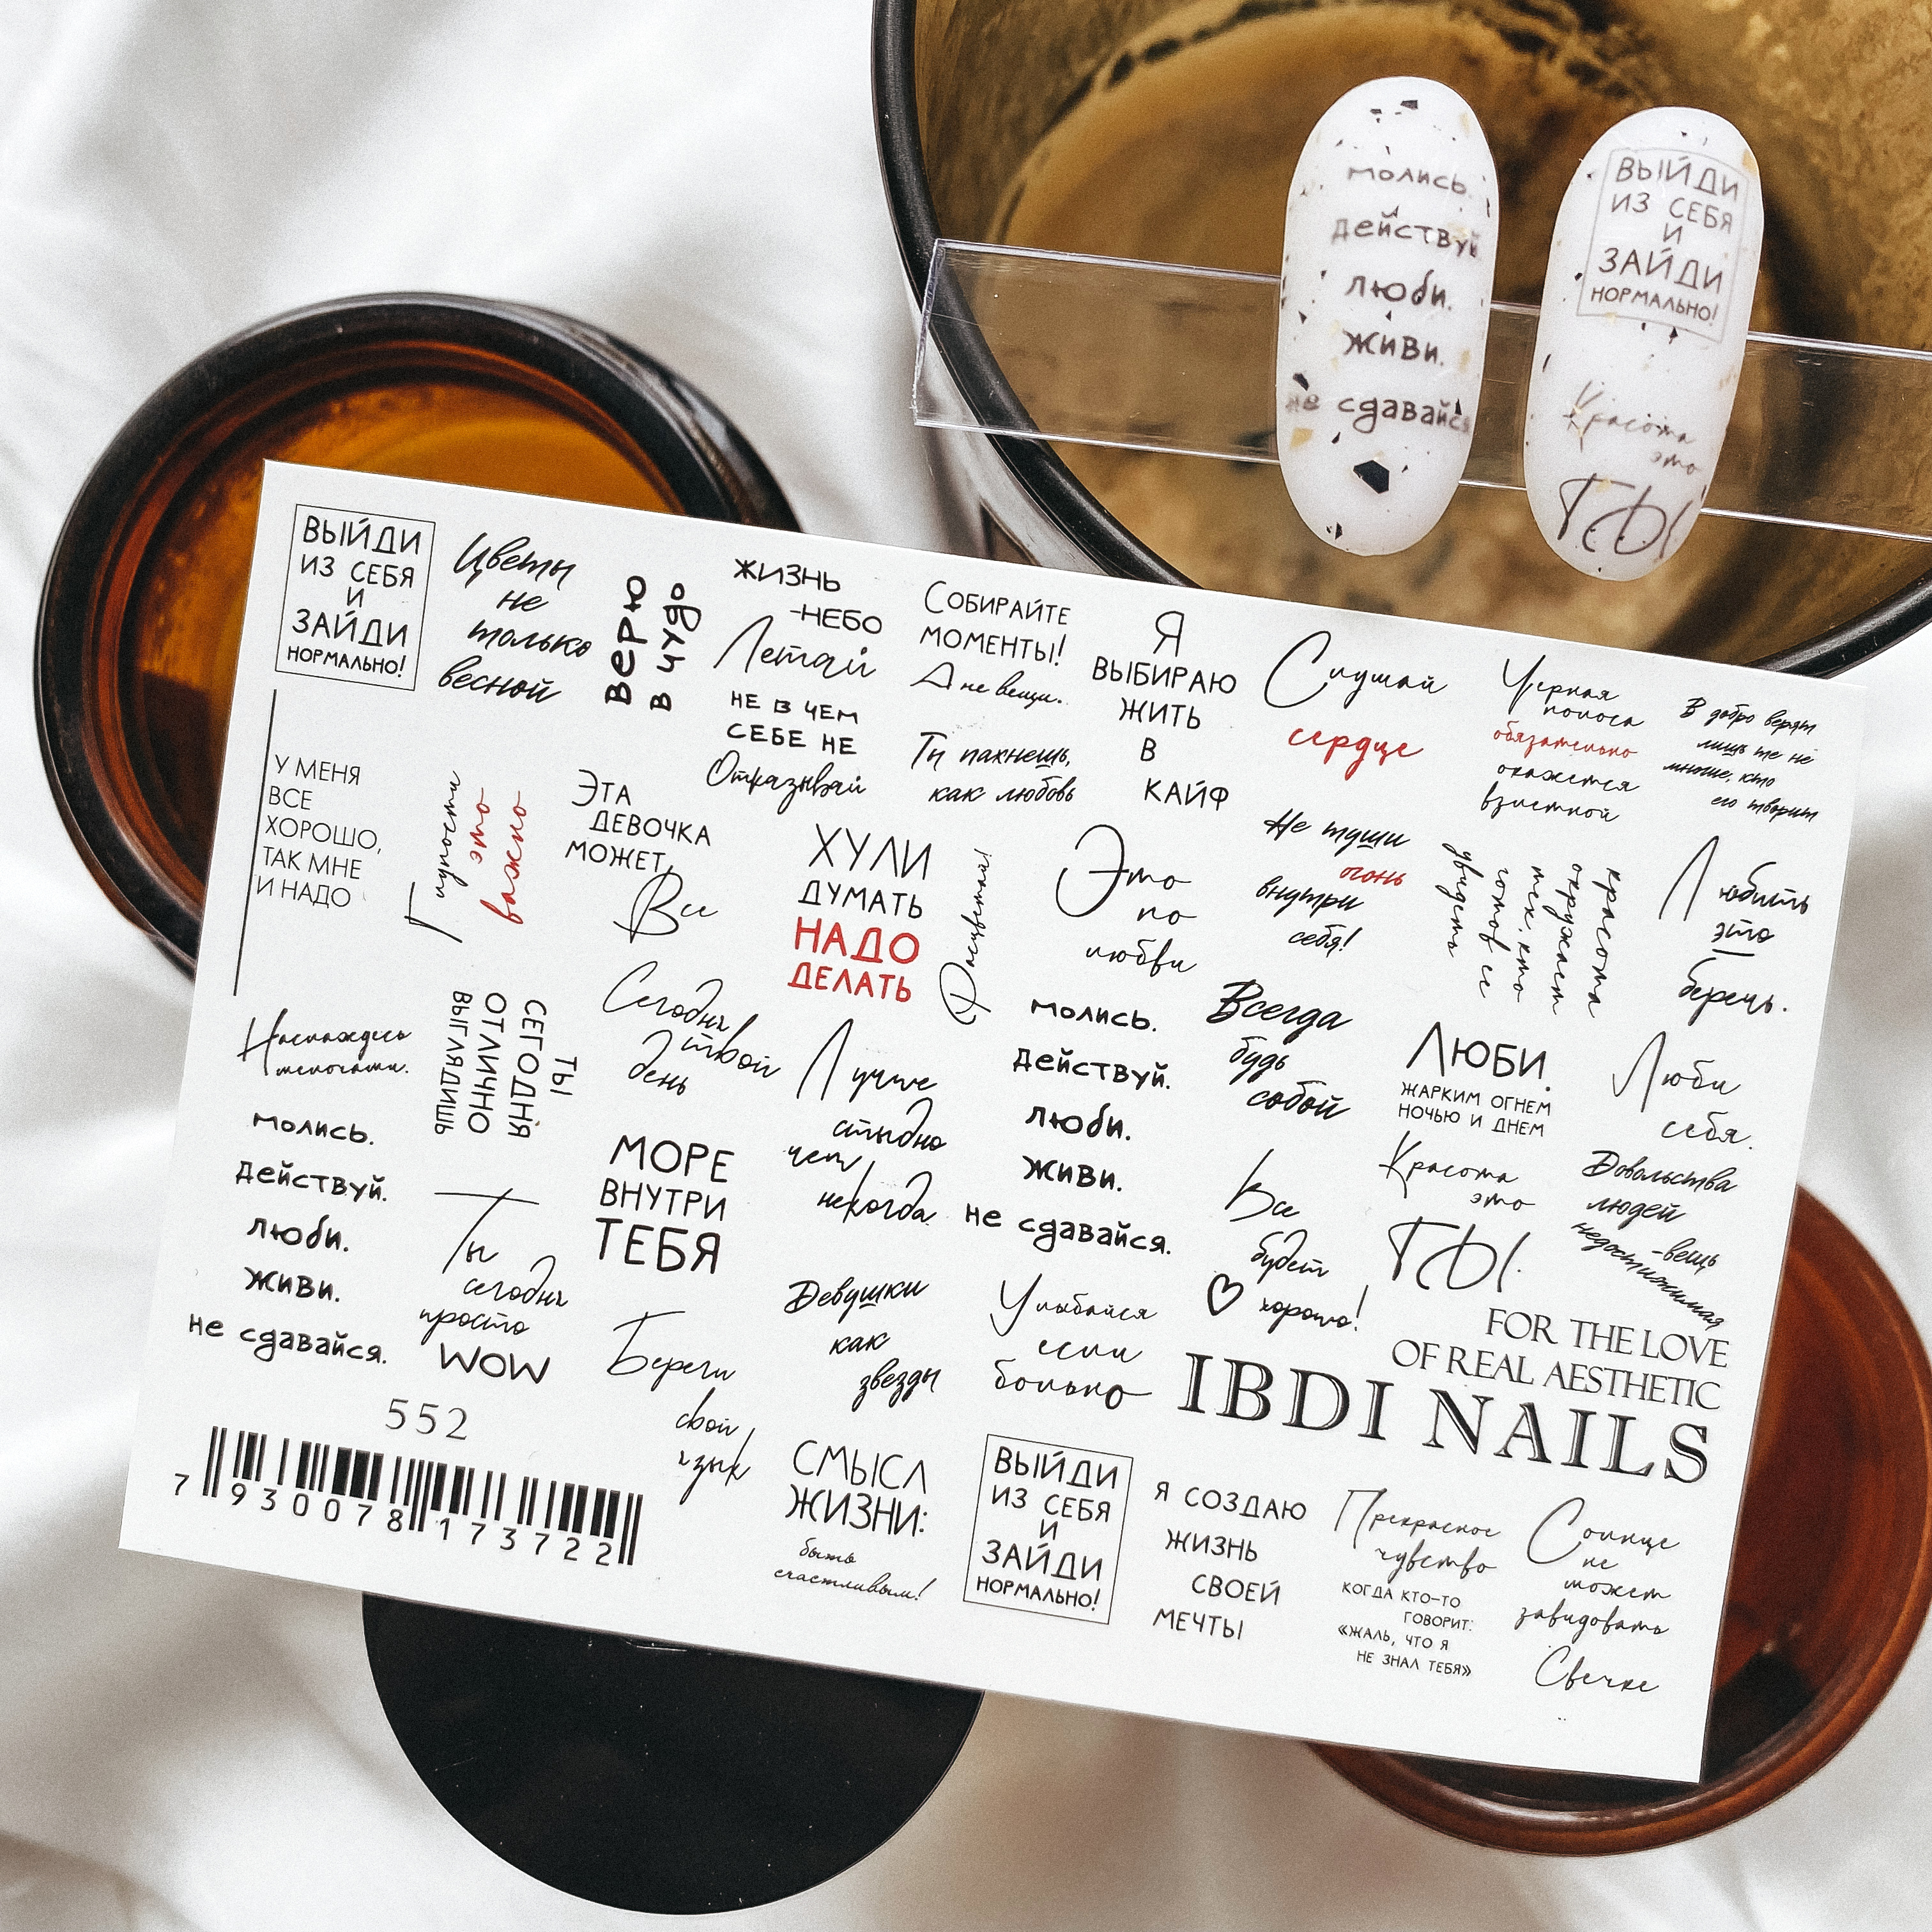 молись.
действуй
люби.
живи.
не сдавайс
ВЫЙДИ
ИЗ СЕБЯ
И
ЗАЙДИ
НОРМАЛЬНО!
Красота
это
ТЫ.
ВЫЙДИ
ИЗ СЕБЯ
И
ЗАЙДИ
НОРМАЛЬНО!
Цветы
не
только
весной
Верю
в чудо
ЖИЗНЬ
-НЕБО
Летай
НЕ В ЧЕМ
СЕБЕ НЕ
Отказывай
СОБИРАЙТЕ
МОМЕНТЫ!
А не вещи.
Ты пахнешь,
как любовь
Я
ВЫБИРАЮ
ЖИТЬ
В
КАЙФ
Слушай
сердце
Черная
полоса
обязательно
окажется
взлетной
В добро верят
лишь те не
многие, кто
его творит
У МЕНЯ
ВСЕ
ХОРОШО,
ТАК МНЕ
И НАДО
Глупости
это
важно
ЭТА
ДЕВОЧКА
МОЖЕТ,
Все
ХУЛИ
ДУМАТЬ
НАДО
ДЕЛАТЬ
Расцветай!
Это
по
любви
Не туши
огонь
внутри
себя!
красота
окружает
тех, кто
готов ее
увидеть
Любить
это
беречь.
Насладжесь
мелочами.
ТЫ
СЕГОДНЯ
ОТЛИЧНО
ВЫГЛЯДИШЬ
Сегодня
твой
день
Лучше
стыдно
чем
некогда.
молись.
действуй.
люби.
живи.
не сдавайся.
Всегда
будь
собой
ЛЮБИ.
ЖАРКИМ ОГНЕМ
НОЧЬЮ И ДНЕМ
Люби
себя.
молись.
действуй.
люби.
живи.
не сдавайся.
Ты
сегодня
просто
WOW
МОРЕ
ВНУТРИ
ТЕБЯ
Все
будет
хорошо!
Красота
это
ТЫ.
Довольства
людей
-вещь
недостижимая
Береги
свой
язык
Девушки
как
звезды
Улыбайся
если
больно
FOR THE LOVE
OF REAL AESTHETIC
IBDI NAILS
552
7 930078 173722
СМЫСЛ
ЖИЗНИ:
быть
счастливым!
ВЫЙДИ
ИЗ СЕБЯ
И
ЗАЙДИ
НОРМАЛЬНО!
Я СОЗДАЮ
ЖИЗНЬ
СВОЕЙ
МЕЧТЫ
Прекрасное
чувство
КОГДА КТО-ТО
ГОВОРИТ:
«ЖАЛЬ, ЧТО Я
НЕ ЗНАЛ ТЕБЯ»
Солнце
не
может
завидовать
Свечке